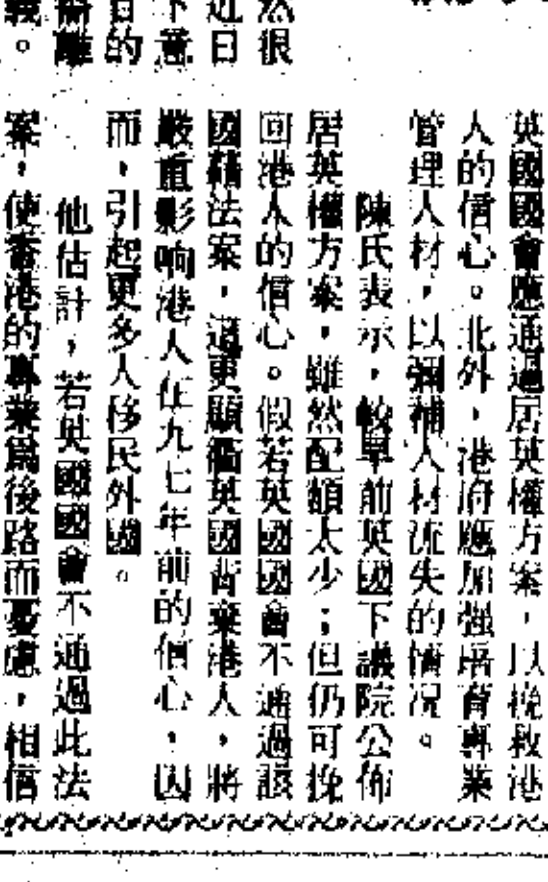 英國國會應通過居英權方案，以挽救港
人的信心。北外，港府應加强培育專業
管理人材，以彌補人材流失的情况。
陳氏表示，較早前英國下議院公佈
居英權方案，雖然配額太少；但仍可挽
回港人的信心。假若英國國會不通過該
國籍法案，這更顯露英國背棄港人，將
嚴重影响港人在九七年前的信心，因
而，引起更多人移民外國。
他估計，若英國國會不通過此法
案，使香港的專業爲後路而憂慮，相信
然很
近日
下意
的
義。